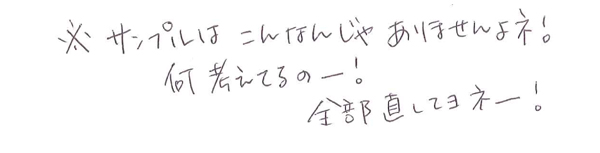 ※ サンプルは こんなんじゃ ありませんよネ!
何考えてるのー!
全部直してヨネー!